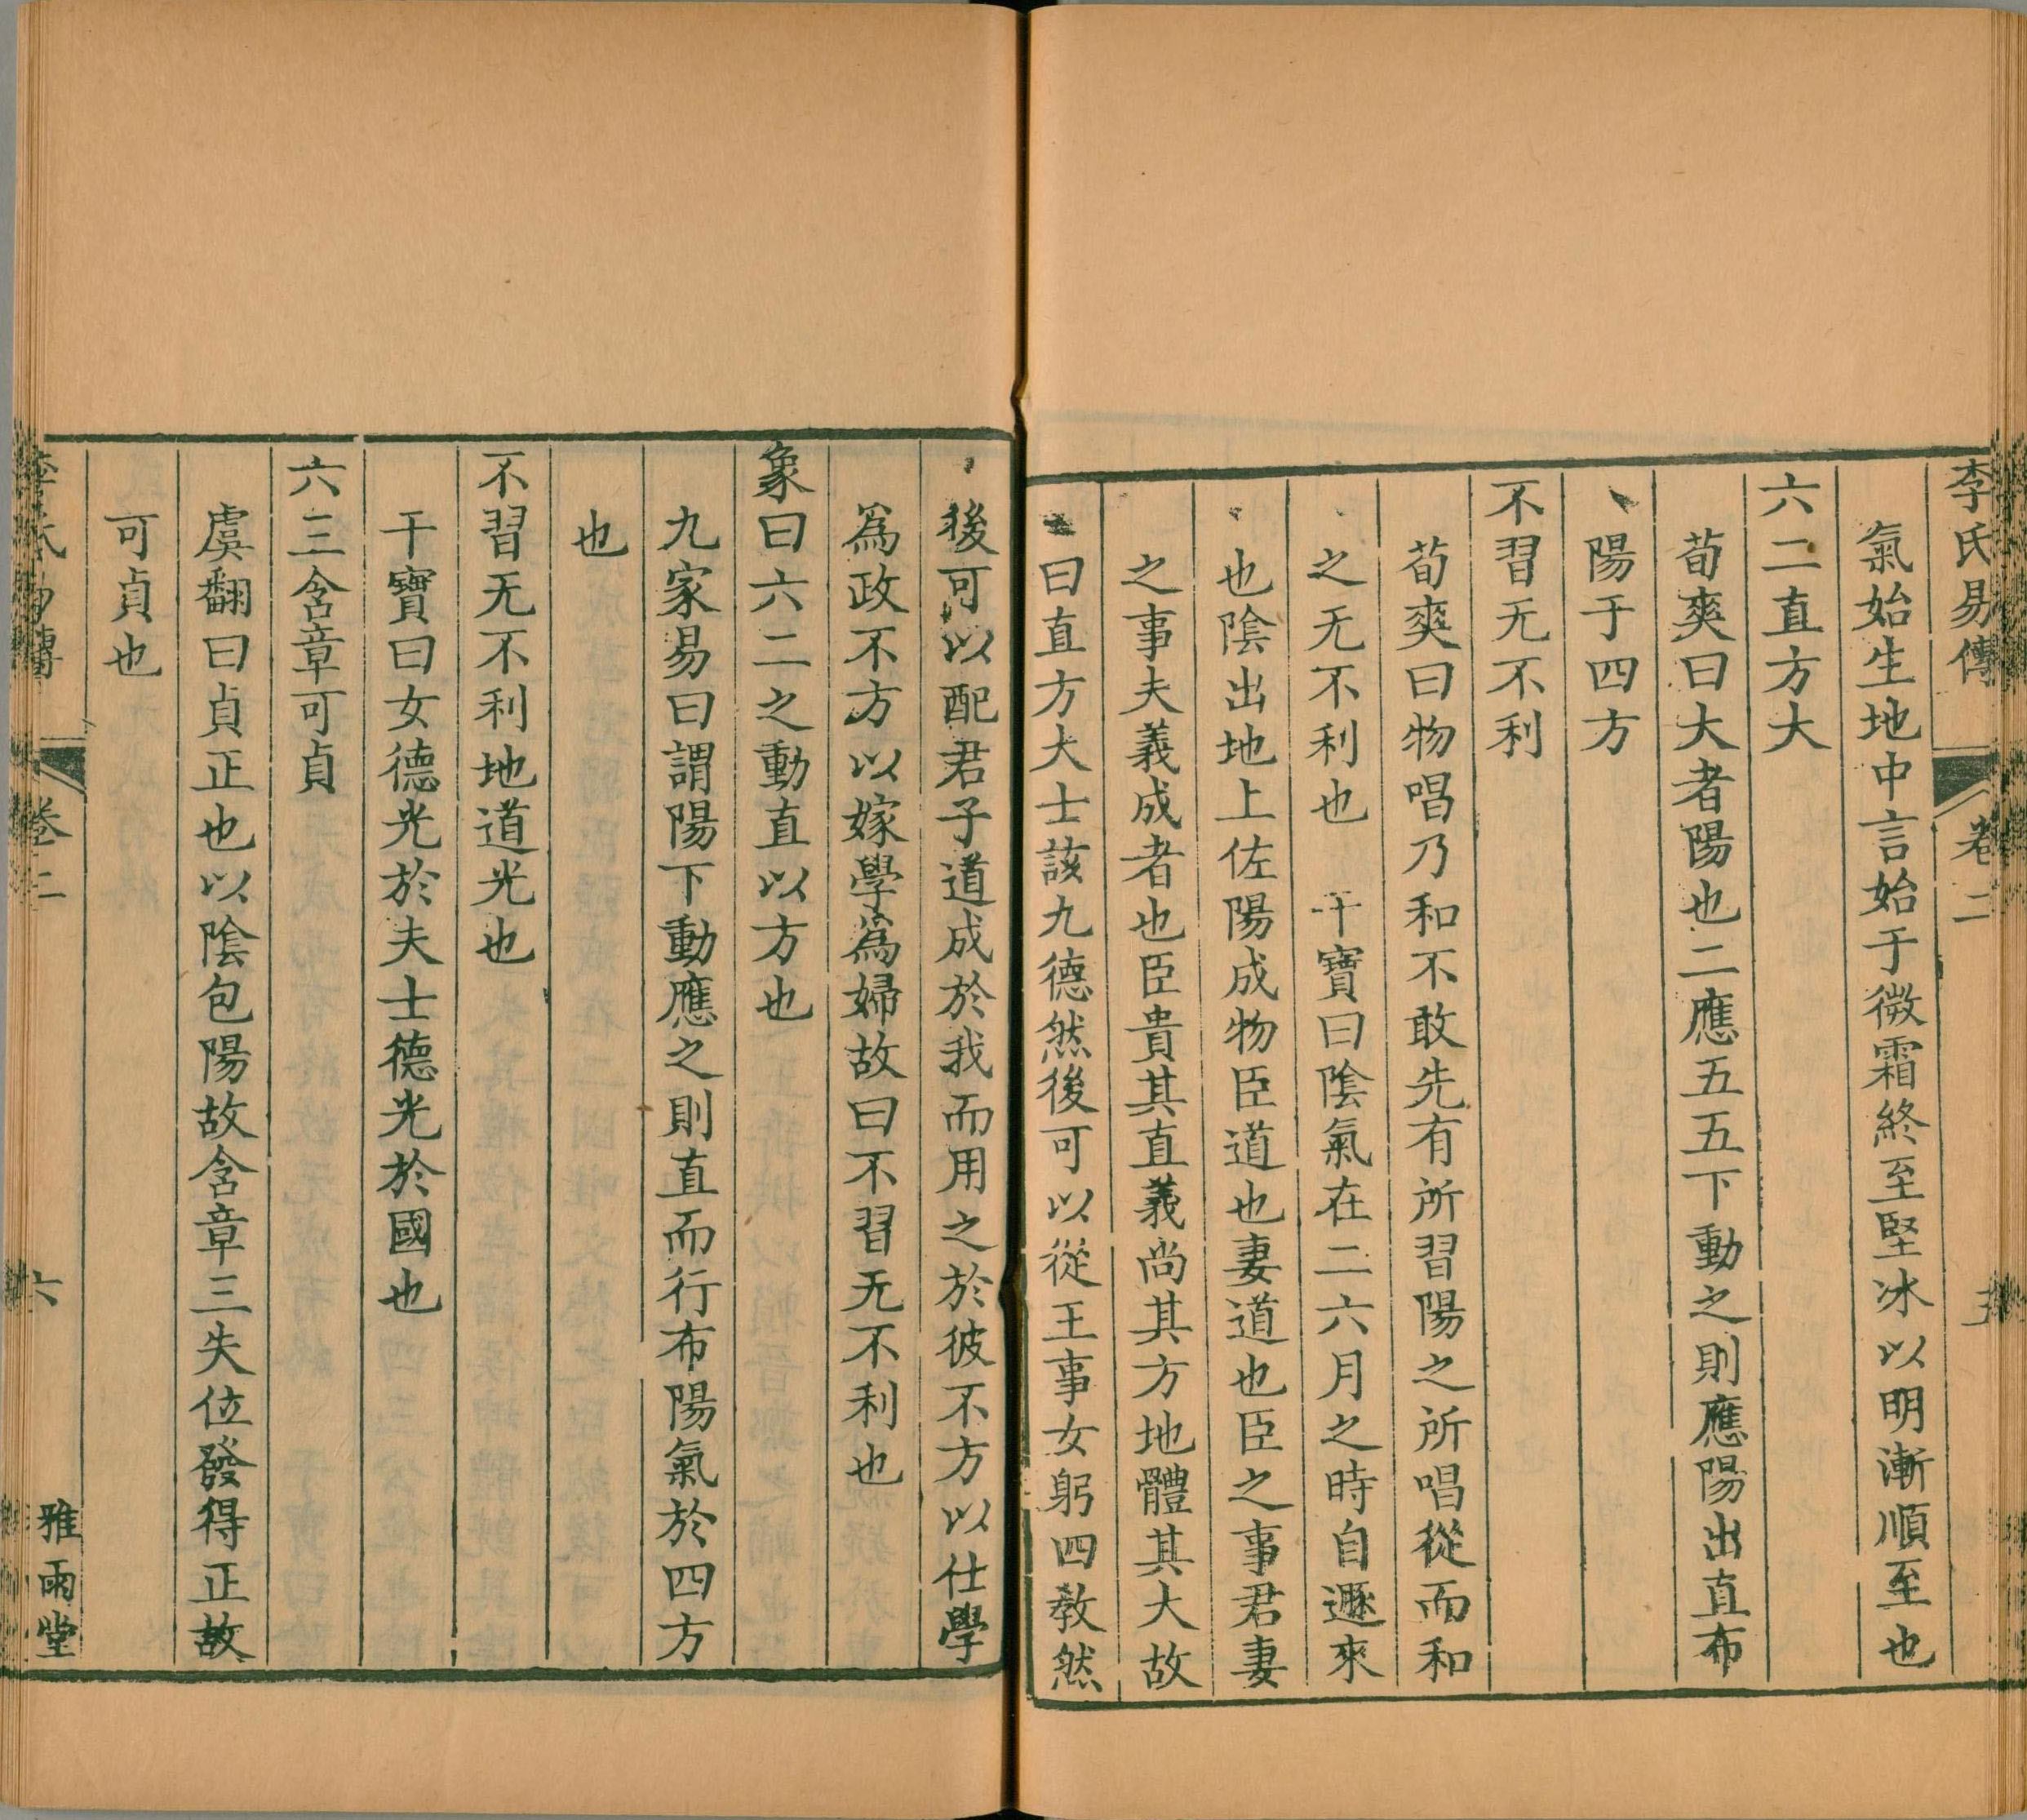 李氏易傳 卷二
氣始生地中言始于微霜終至堅冰以明漸順至也
六二直方大
荀爽曰大者陽也二應五五下動之則應陽出直布
陽于四方
不習无不利
荀爽曰物唱乃和不敢先有所習陽之所唱從而和
之无不利也 干寶曰陰氣在二六月之時自遯來
也陰出地上佐陽成物臣道也妻道也臣之事君妻
之事夫義成者也臣貴其直義尚其方地體其大故
曰直方大士該九德然後可以從王事女躬四教然
後可以配君子道成於我而用之於彼不方以仕學
爲政不方以嫁學爲婦故曰不習无不利也
象曰六二之動直以方也
九家易曰謂陽下動應之則直而行布陽氣於四方
也
不習无不利地道光也
干寶曰女德光於夫士德光於國也
六三含章可貞
虞翻曰貞正也以陰包陽故含章三失位發得正故
可貞也
卷二 六 雅雨堂